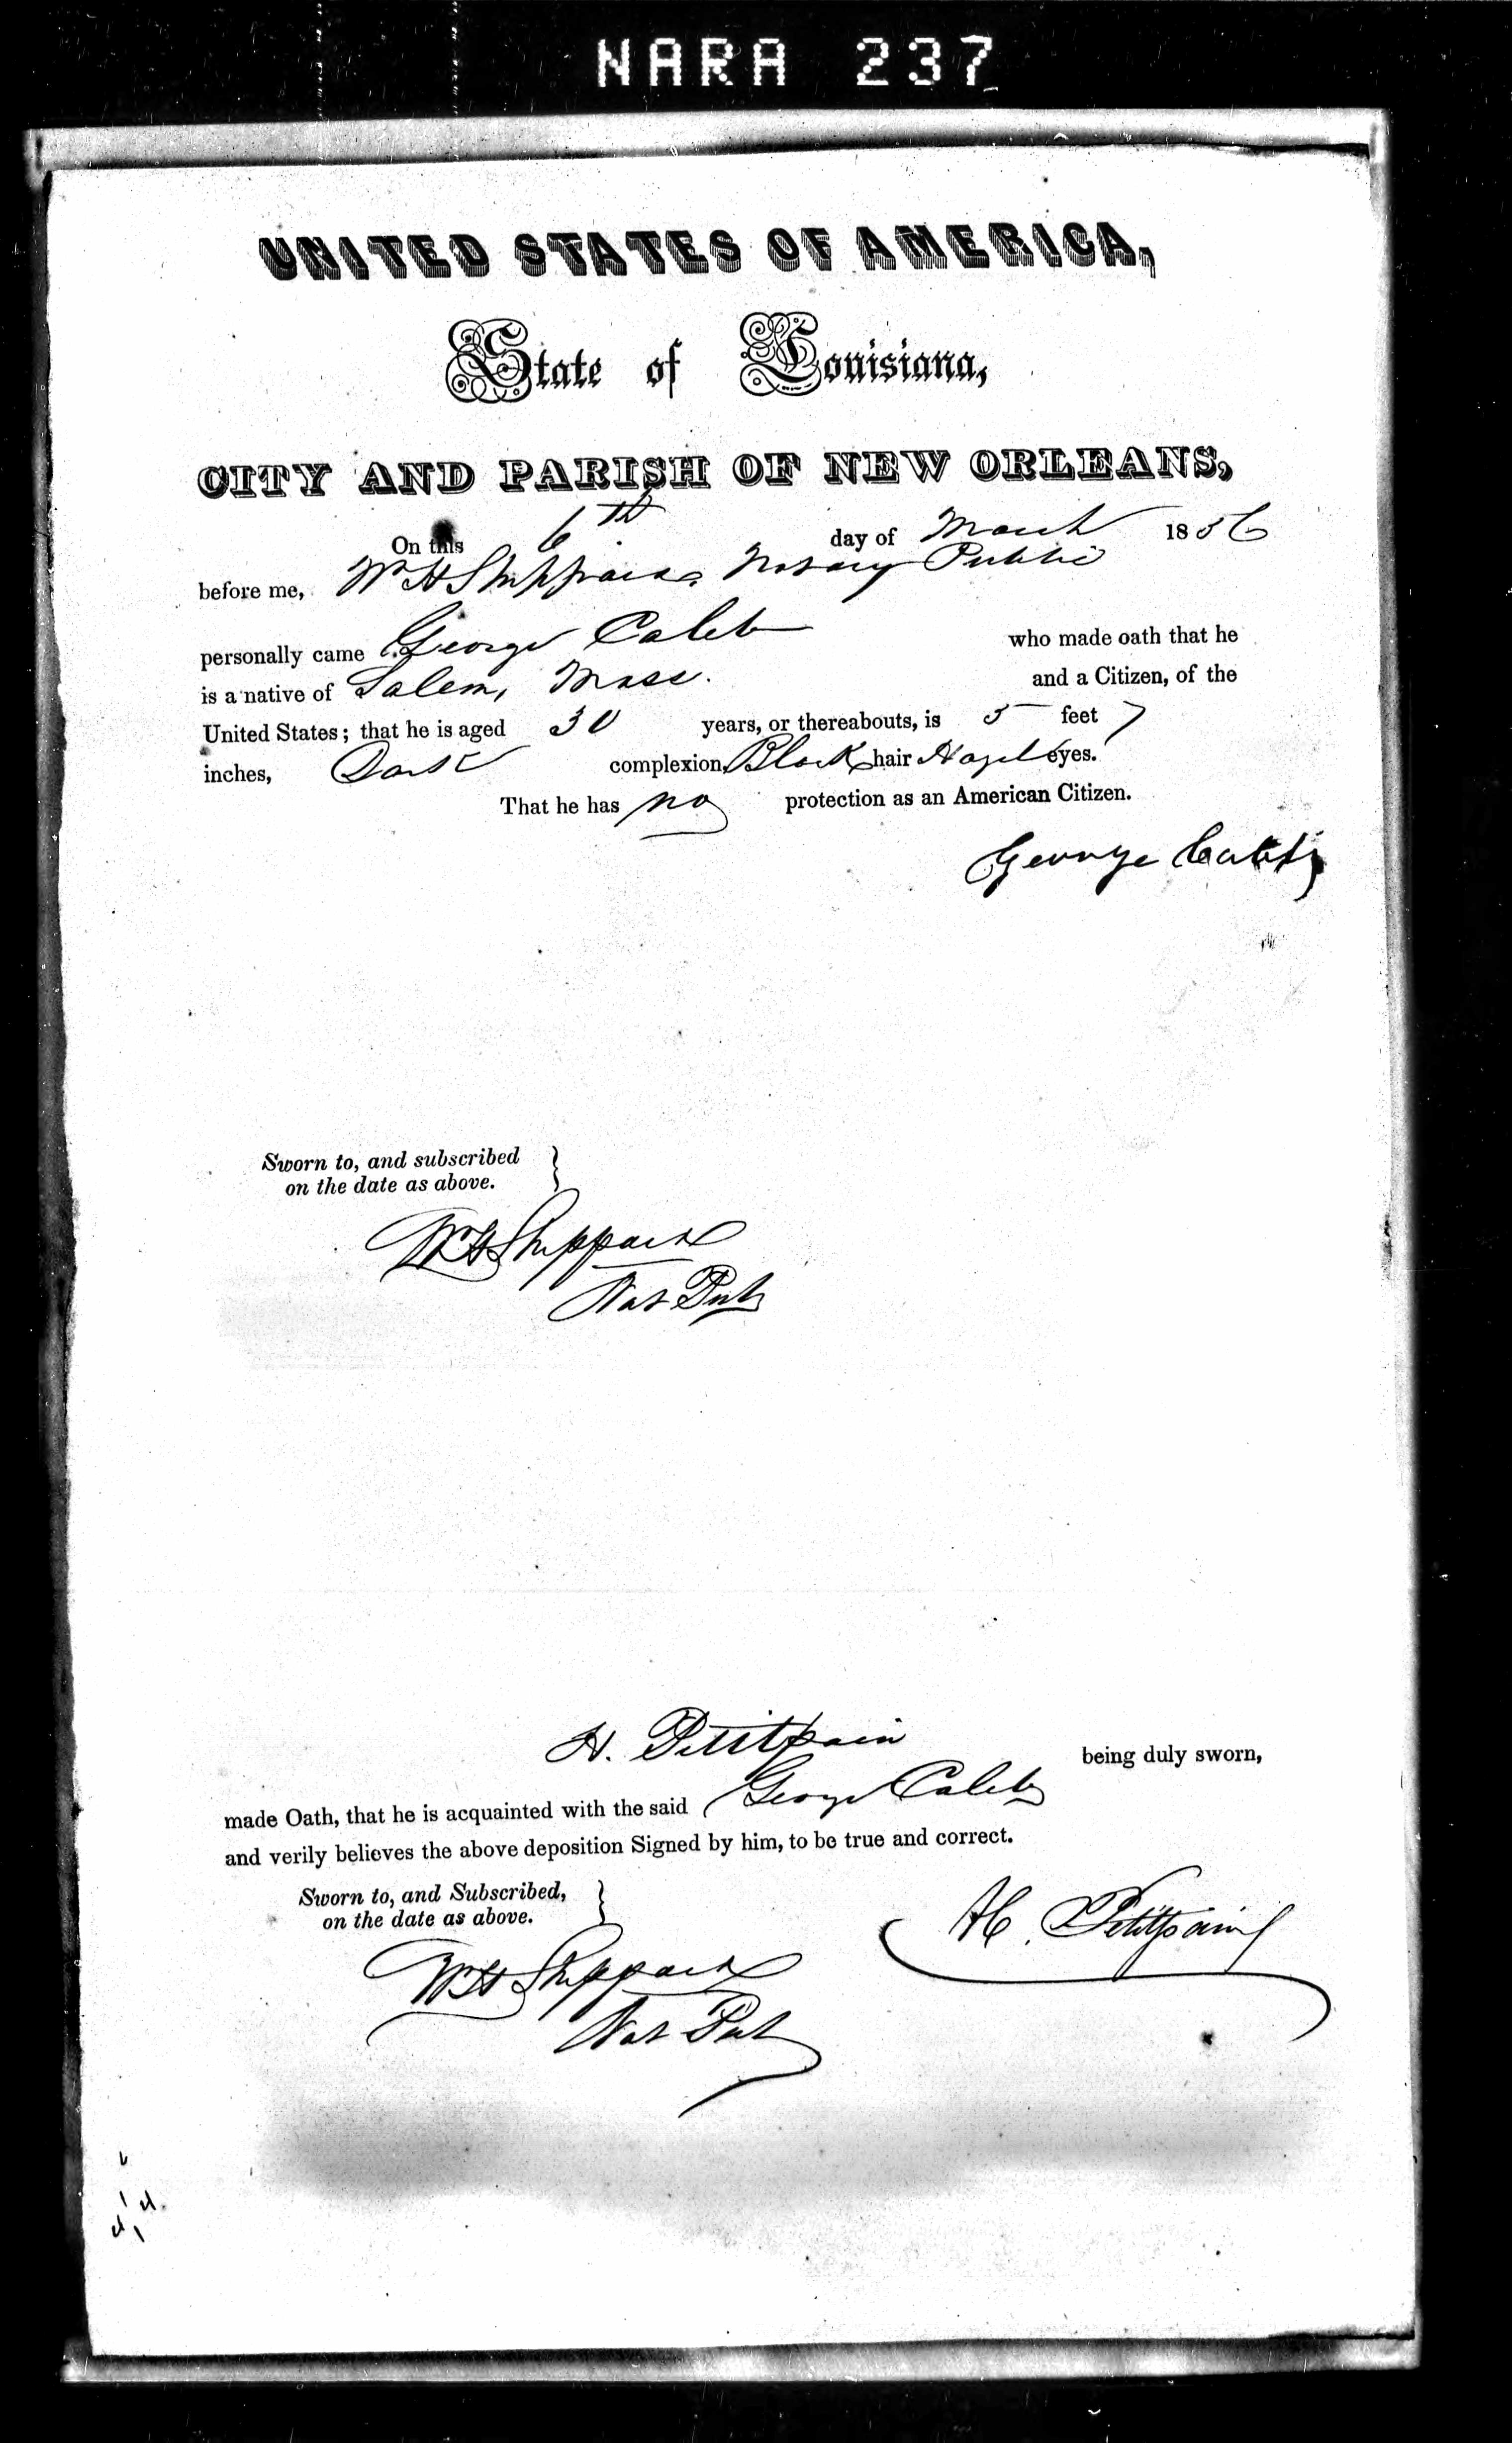 NARA 237
UNITED STATES OF AMERICA,
State of Louisiana,
CITY AND PARISH OF NEW ORLEANS,
On this 6th day of March 1856
before me, Wm H Sheppard Notary Public
personally came George Caleb who made oath that he
is a native of Salem, Mass. and a Citizen, of the
United States; that he is aged 30 years, or thereabouts, is 5 feet 7
inches, Dark complexion, Black hair Hazel eyes.
That he has no protection as an American Citizen.
George Caleb
Sworn to, and subscribed
on the date as above.
Wm H Sheppard
Not Pub
H. Petitpain being duly sworn,
made Oath, that he is acquainted with the said George Caleb
and verily believes the above deposition Signed by him, to be true and correct.
Sworn to, and Subscribed,
on the date as above.
H. Petitpain
Wm H Sheppard
Not Pub